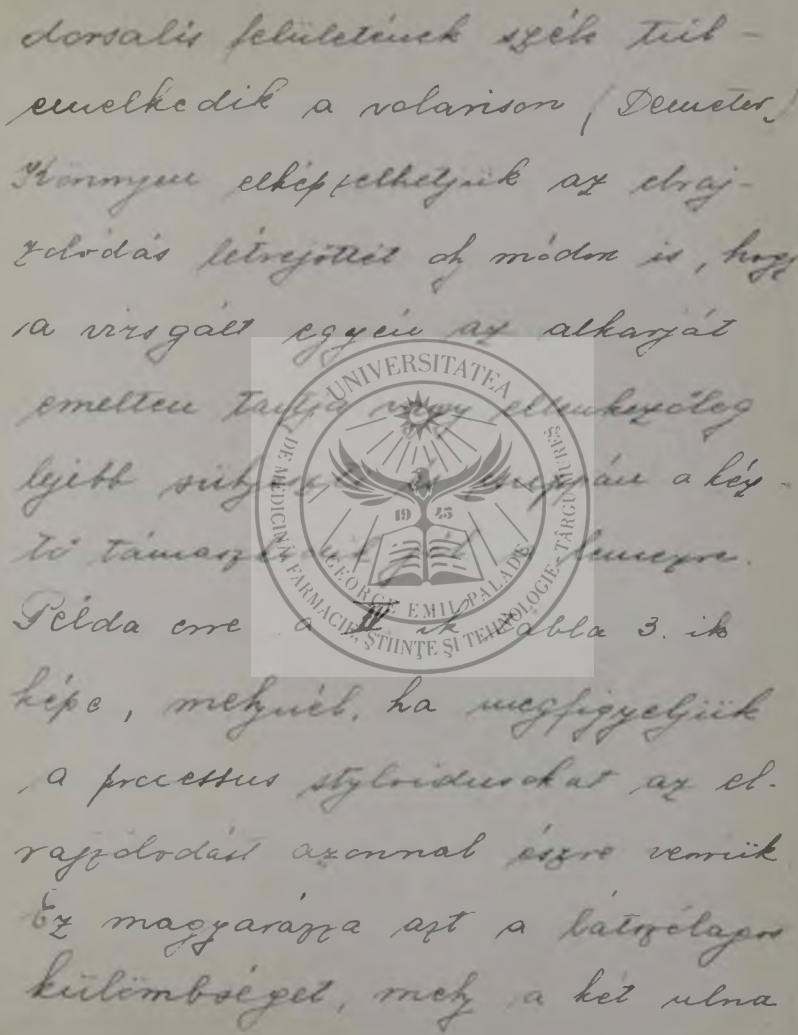 dorsalis felületének széle túl-
emelkedik a volarison (Demeter)
Könnyen elképzelhetjük az elraj-
zolódás létrejöttét oly módon is, hogy
a vizsgált egyén az alkarját
emelten tartja vagy ellenkezőleg
lejjebb csuppán a kéz-
tő a lemezre.
Példa erre a IV ik tábla 3. ik
képe, melynél, ha megfigyeljük
a processus styloidusokat az el-
rajzolódást azonnal észre vesszük
Ez magyarázza azt a látszólagos
külömbséget, mely a két ulna
UNIVERSITATEA
DE MEDICINĂ, FARMACIE, ȘTIINȚE ȘI TEHNOLOGIE
TÂRGU MUREȘ
19 45
GEORGE EMIL PALADE